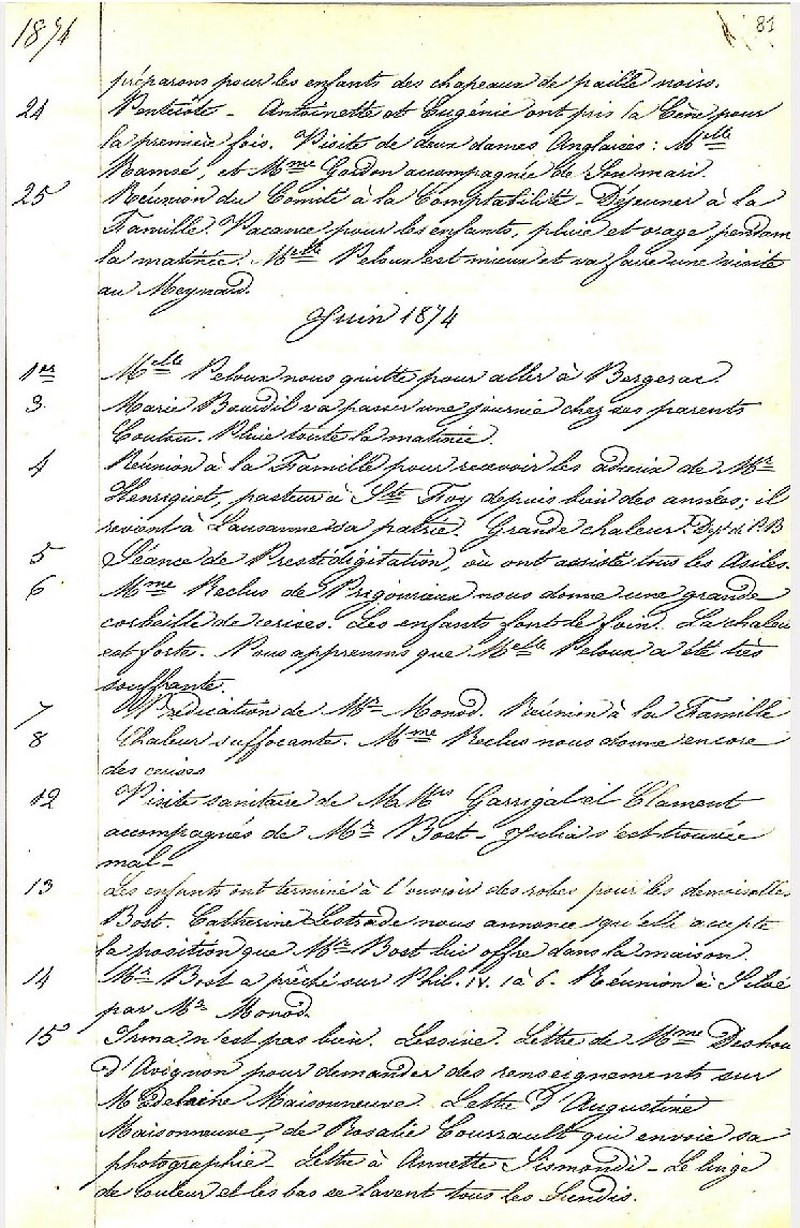 1874
81
préparons pour les enfants des chapeaux de paille noirs.
24 Pentecôte - Antoinette et Eugénie ont pris la Cène pour
la première fois. Visite de deux dames Anglaises : Melle
Ramsé, et Mme Gordon accompagnée de son mari.
25 Réunion du Comité à la Comptabilité - Déjeuner à la
Famille. Vacance pour les enfants, pluie et orage pendant
la matinée. Melle Peloux est mieux et va faire une visite
au Meynard.
Juin 1874
1er Melle Peloux nous quitte pour aller à Bergerac.
3. Marie Bourdil va passer une journée chez ses parents
Coutou. Pluie toute la matinée.
4 Réunion à la Famille pour recevoir les adieux de Mr
Henriquet, pasteur à Ste Foy depuis bien des années; il
revient à Lausanne sa patrie. Grande chaleur. Dépt de P.B
5 Séance de Prestidigitation, où ont assisté tous les Asiles.
6 Mme Reclus de Prigonrieux nous donne une grande
corbeille de cerises. Les enfants font le foin. La chaleur
est forte. Nous apprenons que Melle Peloux a été très
souffrante.
7 Prédication de Mr Monod. Réunion à la Famille
8 Chaleur suffocante. Mme Reclus nous donne encore
des cerises
12 Visite sanitaire de MMrs Garrigat et Clament
accompagnés de Mr Bost - Julia s'est trouvée
mal -
13 Les enfants ont terminé à l'ouvroir des robes pour les demoiselles
Bost. Catherine Lestrade nous annonce qu'elle accepte
la position que Mr Bost lui offre dans la maison.
14 Mr Bost a prêché sur Phil. IV. 1 à 6. Réunion à Siloé
par Mr Monod.
15 Irma n'est pas bien. Lessive. Lettre de Mme Deshou
d'Avignon pour demander des renseignements sur
Madelaine Maisonneuve. Lettre d'Augustine
Maisonneuve, de Rosalie Courrault qui envoie sa
photographie - Lettre à Annette Sismondi - Le linge
de couleur et les bas se lavent tous les Lundis.